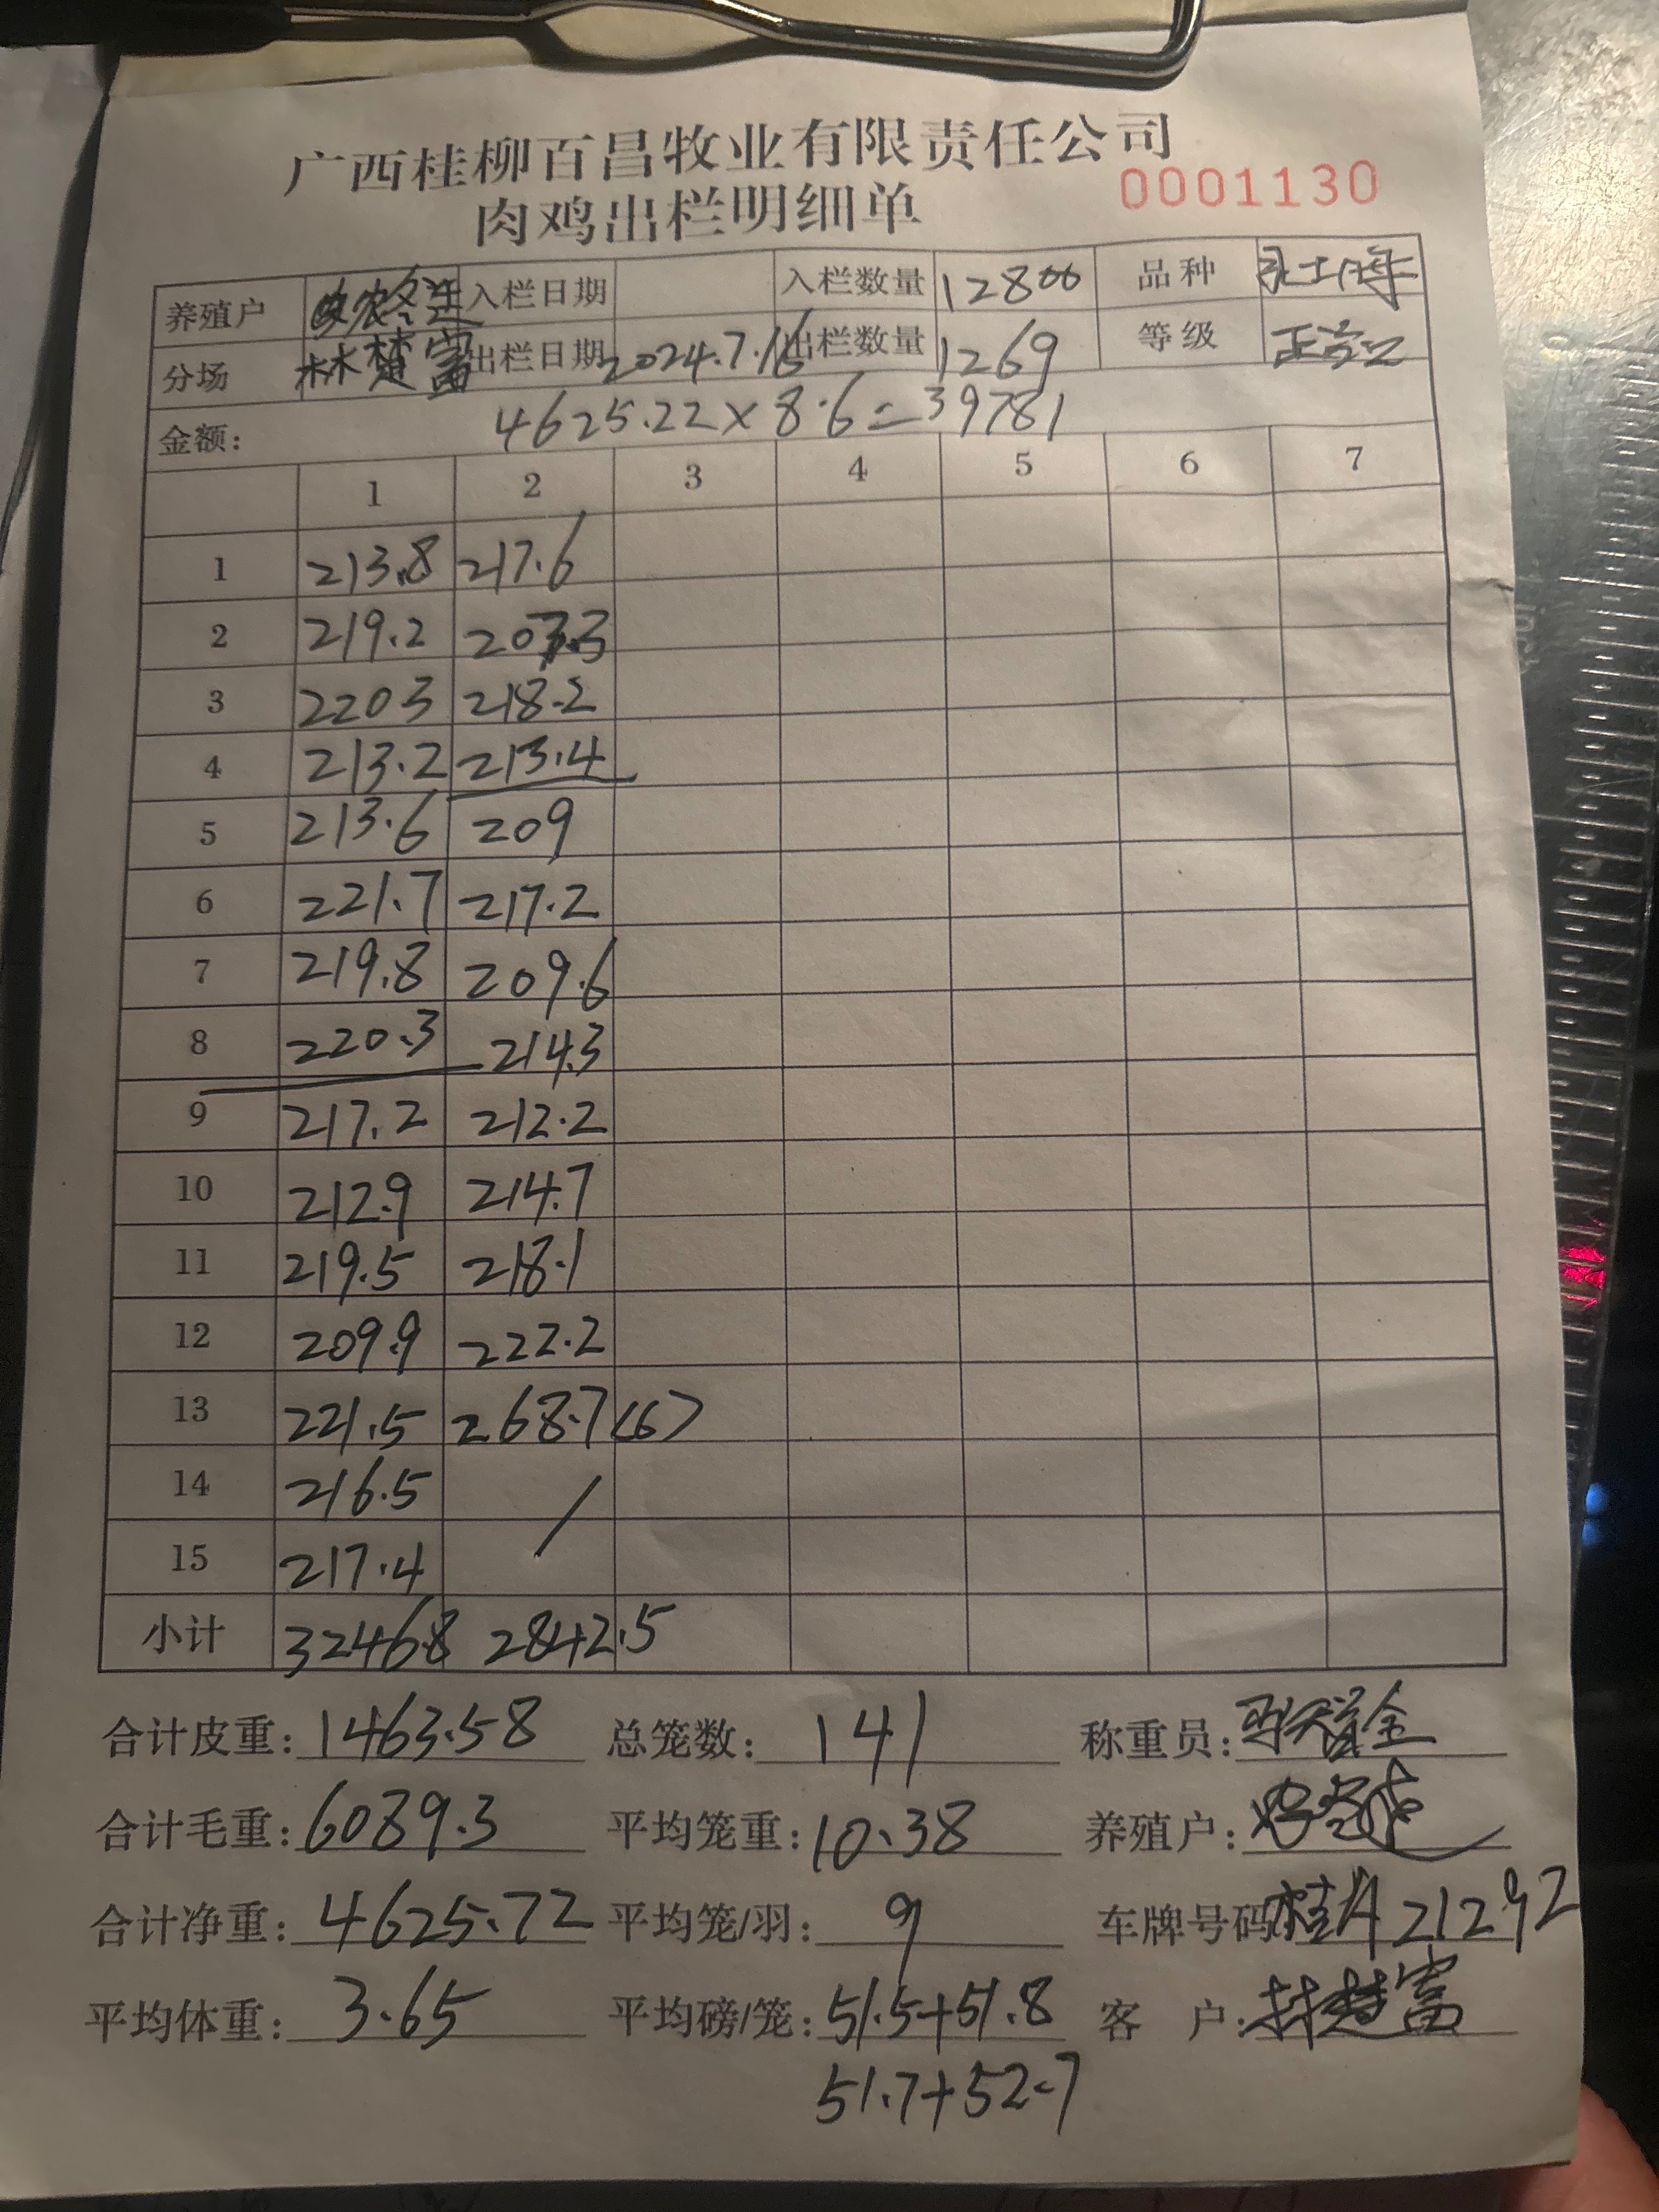 广西桂柳百昌牧业有限责任公司
肉鸡出栏明细单 0001130
养殖户 入栏日期 入栏数量 12800 品种
分场 林楚富 出栏日期 2024.7.16 出栏数量 1269 等级
金额: 4625.22×8.6=39781
1 2 3 4 5 6 7
1 213.8 217.6
2 219.2 207.3
3 2203 218.2
4 213.2 213.4
5 213.6 209
6 221.7 217.2
7 219.8 209.6
8 220.3 214.3
9 217.2 212.2
10 212.9 214.7
11 219.5 218.1
12 209.9 222.2
13 221.5 268.7(6)
14 216.5 /
15 217.4
小计 3246.8 2842.5
合计皮重: 1463.58 总笼数: 141 称重员:
合计毛重: 6089.3 平均笼重: 10.38 养殖户:
合计净重: 4625.72 平均笼/羽: 9 车牌号码 桂A21292
平均体重: 3.65 平均磅/笼: 51.5+51.8 客 户: 林楚富
51.7+52.7